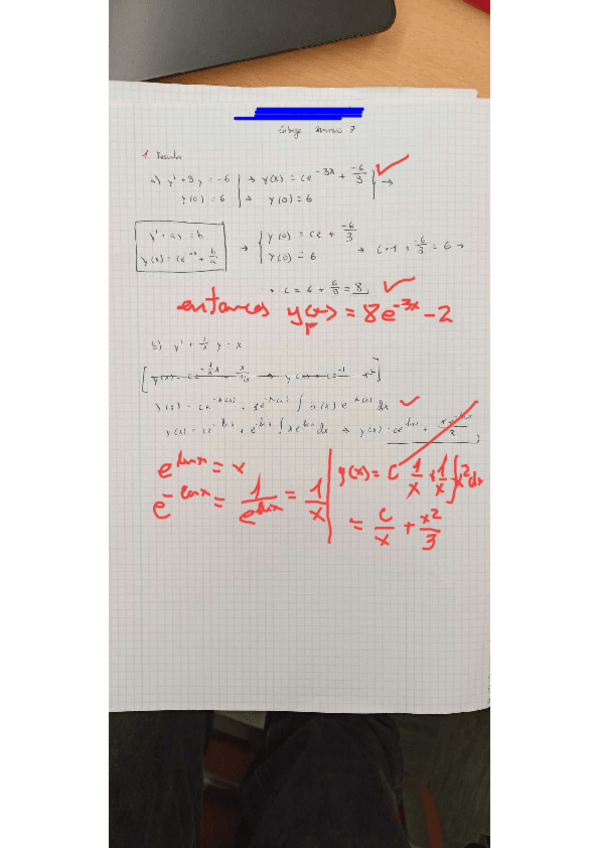 Entrega Seminario 7
1. Resuelve
a) y' + 3y = -6 → y(x) = ce^{-3x} + \frac{-6}{3} ✓ →
y(0) = 6 → y(0) = 6
y' + ay = b
y(x) = ce^{-ax} + \frac{b}{a}
→ y(0) = ce + \frac{-6}{3}
y(0) = 6
→ c · 1 + \frac{-6}{3} = 6 →
→ c = 6 + \frac{6}{3} = 8 ✓
entonces y_p(x) = 8e^{-3x} - 2
b) y' + \frac{1}{x} y = x
y(x) = ce^{-A(x)} + e^{-A(x)} ∫ b(x) e^{A(x)} dx ✓
y(x) = ce^{-ln x} + e^{-ln x} ∫ x e^{ln x} dx →
e^{ln x} = x
e^{-ln x} = \frac{1}{e^{ln x}} = \frac{1}{x}
y(x) = C \frac{1}{x} + \frac{1}{x} ∫ x² dx
= \frac{C}{x} + \frac{x²}{3}